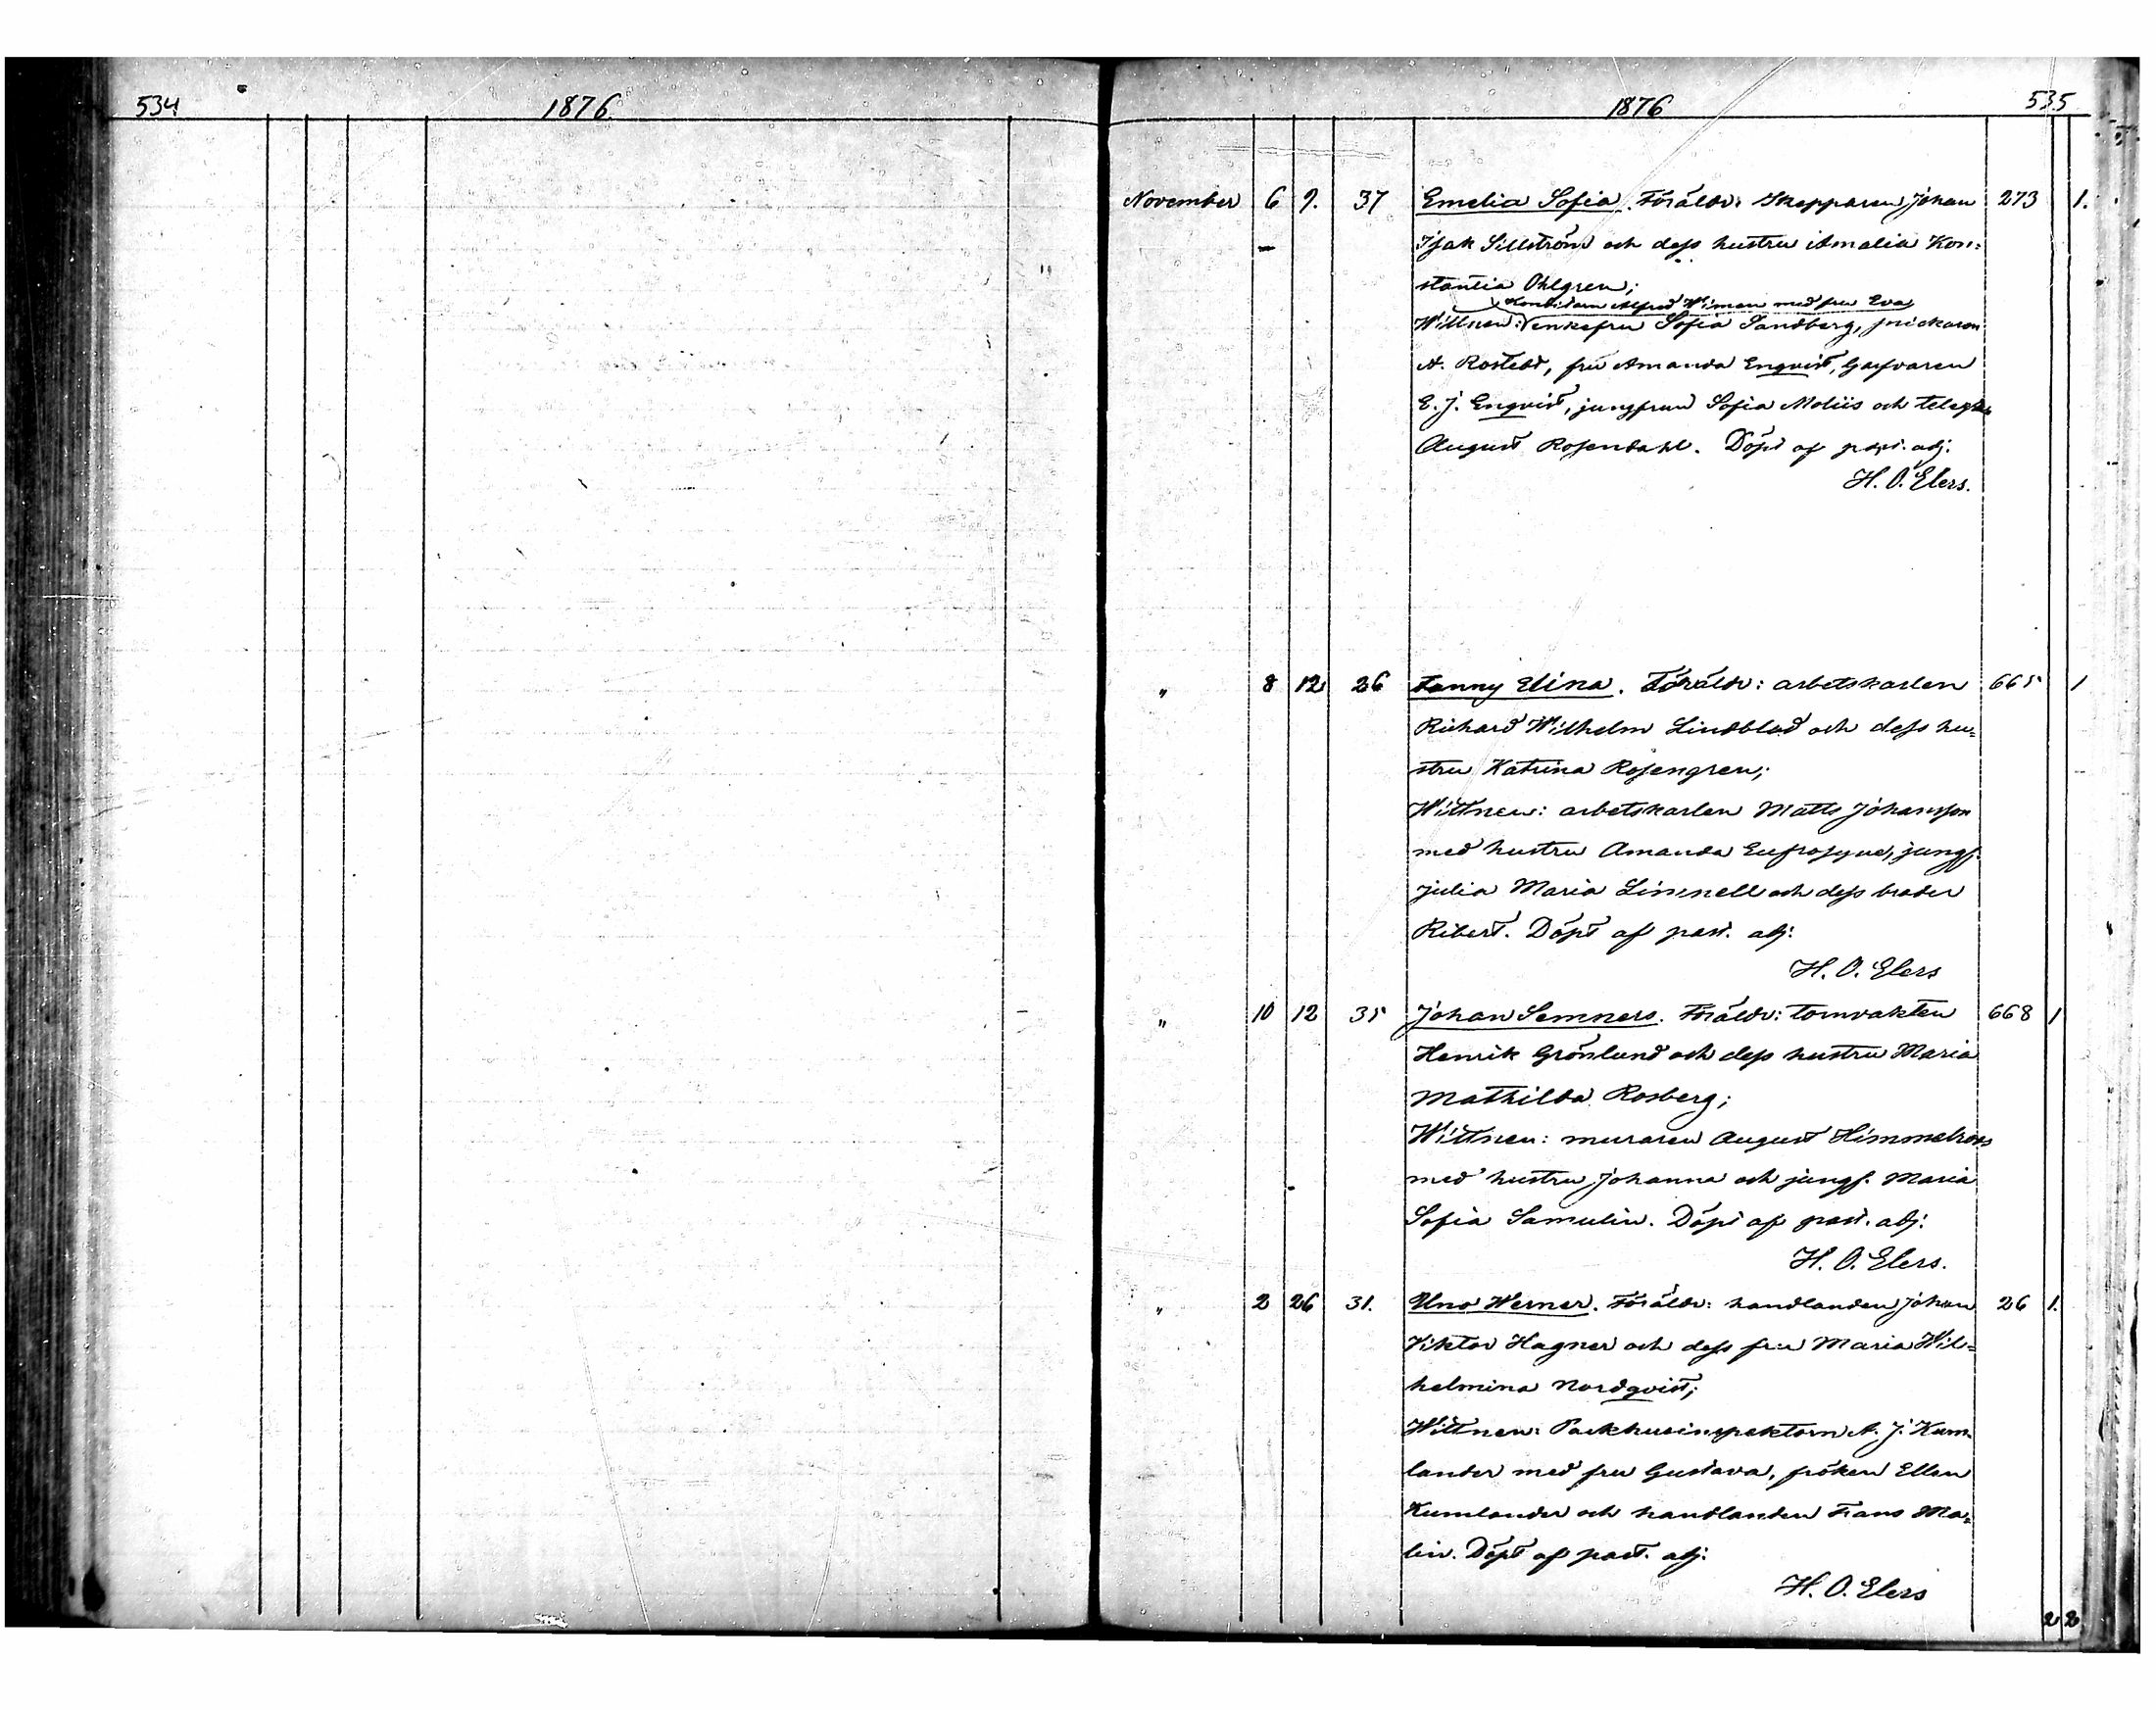 534
1876
1876
535
November 6 9. 37 Emelia Sofia. Föräldr: Skepparen Johan 273 1.
Isak Sillström och dess hustru Amalia Kon=
stantia Ohlgren;
Konditorn Alfred Wiman med fru Eva,
Wittnen: enkefru Sofia Sandberg, snickaren
A. Rostedt, fru Amanda Enqvist, garfvaren
E. J. Enqvist, jungfrun Sofia Moliis och
August Rosendahl. Döpt af past. adj.
H. O. Elers.
" 8 12 26 Fanny Elina. Föräldr: arbetskarlen 665 1
Richard Wilhelm Lindblad och dess hu=
stru Katrina Rosengren;
Wittnen: arbetskarlen Matts Johansson
med hustru Amanda Eufrosyne, jungf.
Julia Maria Linnell och dess broder
Ribert. Döpt af past. adj.
H. O. Elers
" 10 12 35 Johan Semners. Föräldr: tornvakten 668 1
Henrik Grönlund och dess hustru Maria
Mathilda Rosberg;
Wittnen: muraren August Himmelroos
med hustru Johanna och jungf. Maria
Sofia Samulin. Döpt af past. adj.
H. O. Elers.
" 2 26 31. Uno Werner. Föräldr: handlanden Johan 26 1.
Viktor Hagner och dess fru Maria Wil=
helmina Nordqvist;
Wittnen: Packhusinspektorn A. J. Kum=
lander med fru Gustava, fröken Ellen
Kumlander och handlanden Frans Ma=
lin. Döpt af past. adj.
H. O. Elers
2 2